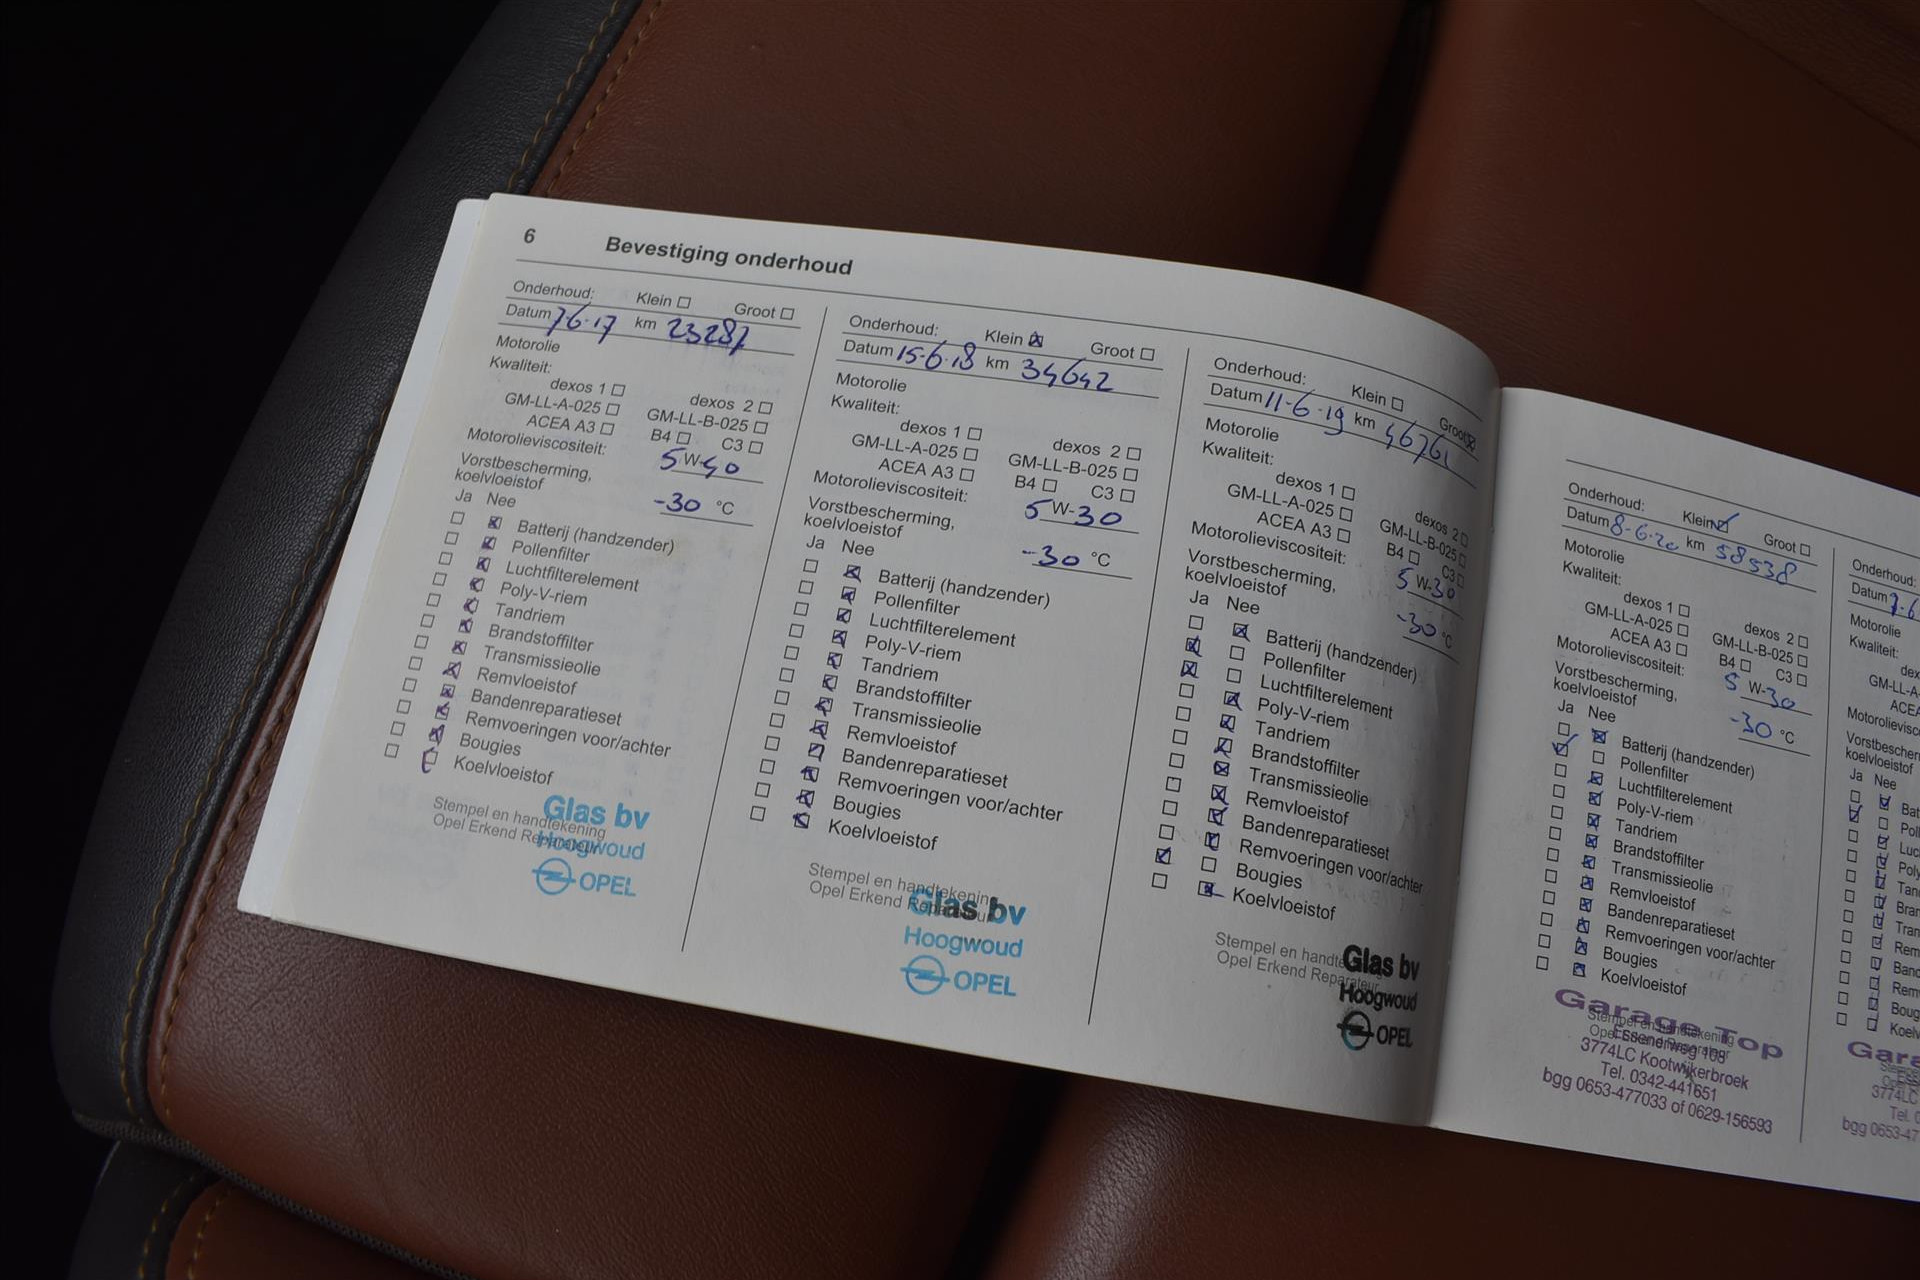 6 Bevestiging onderhoud
Onderhoud: Klein Groot
Datum 7-6-17 km 23287
Motorolie
Kwaliteit:
dexos 1 dexos 2
GM-LL-A-025 GM-LL-B-025
ACEA A3 B4 C3
Motorolieviscositeit: 5 W-40
Vorstbescherming,
koelvloeistof -30 °C
Ja Nee
Batterij (handzender)
Pollenfilter
Luchtfilterelement
Poly-V-riem
Tandriem
Brandstoffilter
Transmissieolie
Remvloeistof
Bandenreparatieset
Remvoeringen voor/achter
Bougies
Koelvloeistof
Stempel en handtekening
Opel Erkend Reparateur
Glas bv
Hoogwoud
OPEL
Onderhoud: Klein Groot
Datum 15-6-18 km 34642
Motorolie
Kwaliteit:
dexos 1 dexos 2
GM-LL-A-025 GM-LL-B-025
ACEA A3 B4 C3
Motorolieviscositeit: 5 W-30
Vorstbescherming,
koelvloeistof -30 °C
Ja Nee
Batterij (handzender)
Pollenfilter
Luchtfilterelement
Poly-V-riem
Tandriem
Brandstoffilter
Transmissieolie
Remvloeistof
Bandenreparatieset
Remvoeringen voor/achter
Bougies
Koelvloeistof
Stempel en handtekening
Opel Erkend Reparateur
Glas bv
Hoogwoud
OPEL
Onderhoud: Klein Groot
Datum 11-6-19 km 46761
Motorolie
Kwaliteit:
dexos 1 dexos 2
GM-LL-A-025 GM-LL-B-025
ACEA A3 B4 C3
Motorolieviscositeit: 5 W-30
Vorstbescherming,
koelvloeistof -30 °C
Ja Nee
Batterij (handzender)
Pollenfilter
Luchtfilterelement
Poly-V-riem
Tandriem
Brandstoffilter
Transmissieolie
Remvloeistof
Bandenreparatieset
Remvoeringen voor/achter
Bougies
Koelvloeistof
Stempel en handte
Opel Erkend Reparateur
Glas bv
Hoogwoud
OPEL
Onderhoud: Klein Groot
Datum 8-6-20 km 58538
Motorolie
Kwaliteit:
dexos 1 dexos 2
GM-LL-A-025 GM-LL-B-025
ACEA A3 B4 C3
Motorolieviscositeit: 5 W-30
Vorstbescherming,
koelvloeistof -30 °C
Ja Nee
Batterij (handzender)
Pollenfilter
Luchtfilterelement
Poly-V-riem
Tandriem
Brandstoffilter
Transmissieolie
Remvloeistof
Bandenreparatieset
Remvoeringen voor/achter
Bougies
Koelvloeistof
Garage Top
Stempel en handtekening
Opel Erkend Reparateur
Essenerweg 108
3774LC Kootwijkerbroek
Tel. 0342-441651
bgg 0653-477033 of 0629-156593
Onderhoud:
Datum 7-6
Motorolie
Kwaliteit:
dex
GM-LL-A-
ACEA
Motorolievisco
Vorstbescher
koelvloeistof
Ja Nee
Bat
Poll
Luc
Poly
Tan
Bran
Tran
Rem
Band
Rem
Boug
Koelv
Gara
3774LC
Tel. 0
bgg 0653-47